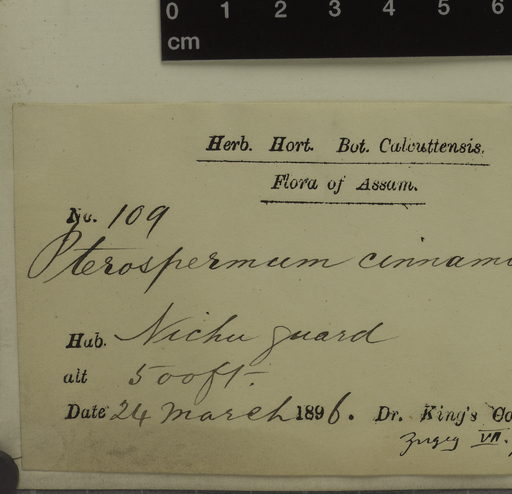 0 1 2 3 4 5 6
cm
Herb. Hort. Bot. Calcuttensis.
Flora of Assam.
No. 109
Pterospermum cinnamo
Hab. Nichu guard
alt 500 ft.
Date 24 March 1896. Dr. King's Co
VII.